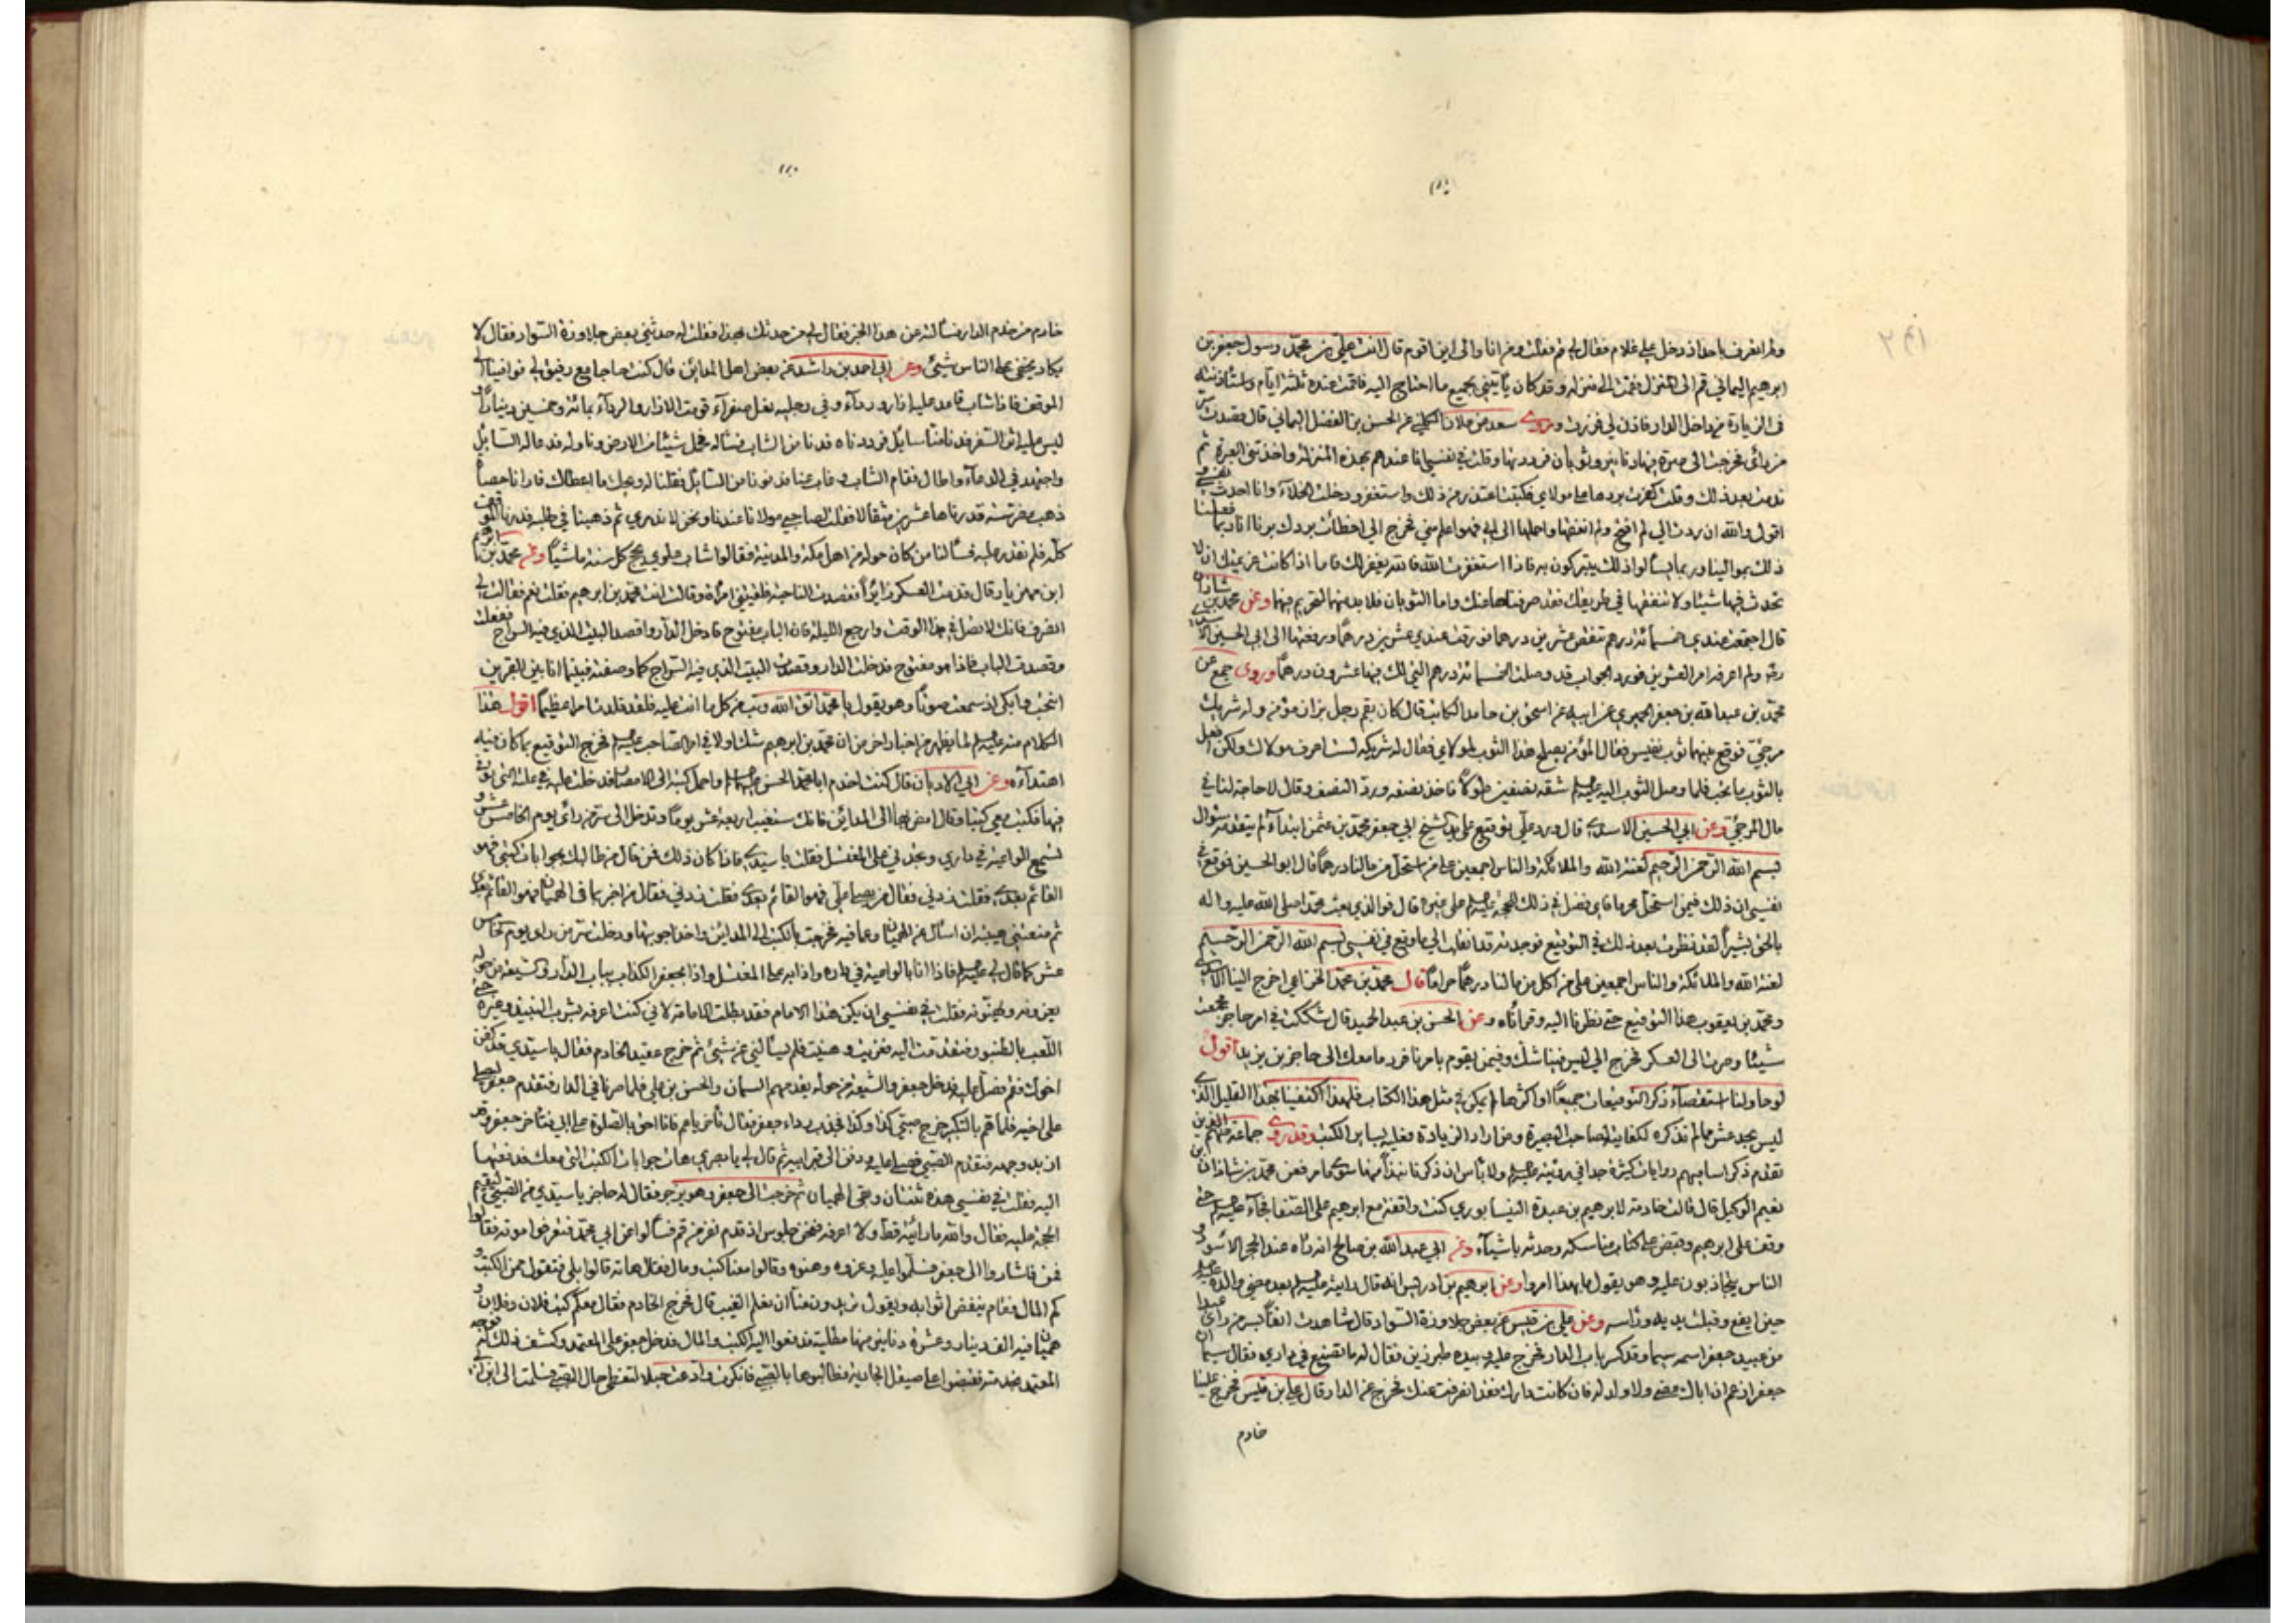 ولم انصرف باحد اذ دخل علي غلام فقال لي قم فقلت من انا والى اين اقوم قال انت علي بن محمد رسول جعفر بن
ابرهيم اليماني قم الى المنزل فقمت الى منزله وقد كان يأتيني بجميع ما احتاج اليه فاقمت عنده ثلثة ايام واستأذنته
في الزيارة من داخل الدار فاذن لي فزرت وروى سعد من علان الكليني عن الحسن بن الفضل اليماني قال قصدت سر
من رأى فخرجت الي صرة فيها دنانير وثوبان فرددتها وقلت في نفسي انا عندهم بهذه المنزلة واخذتني العزة ثم
ندمت بعد ذلك وقلت كفرت بردها على مولاي فكتبت اعتذر من ذلك واستغفر ودخلت الخلاء وانا احدث نفسي و
اقول والله ان ردت الي لم افتح ولم انفقها واحملها الى ابي فهو اعلم مني فخرج الي اخطأت بردك برنا انا ربما فعلنا
ذلك بموالينا وربما يسألوا ذلك يتبركون به فاذا استغفرت الله فالله يغفر لك فاما اذا كانت عزيمتك ان لا
تحدث فيها شيئا ولا تنفقها في طريقك فقد صرفناها عنك واما الثوبان فلا بد منهما لتحرم فيهما وعن محمد بن شاذان
قال اجتمعت عندي خمسمائة درهم تنقص عشرين درهما فوزنت عندي عشرين درهما ودفعتها الى ابي الحسين الاسدي
رة ولم اعرفه امر العشرين فورد الجواب قد وصلت الخمسمائة درهم التي لك فيها عشرون درهما وروى جمع عن
محمد بن عبدالله بن جعفر الحميري عن ابيه عن اسحق بن حامد الكاتب قال كان بقم رجل بزاز مؤمن وله شريك
مرجئ فوقع بينهما ثوب نفيس فقال المؤمن يصلح هذا الثوب لمولاي فقال له شريكه لست اعرف مولاك ولكن افعل
بالثوب ما تحب فلما وصل الثوب اليه شقه نصفين طولا فاخذ نصفه ورد النصف وقال لا حاجة لنا في
مال المرجئ وعن ابي الحسين الاسدي قال ورد علي توقيع على يد الشيخ ابي جعفر محمد بن عثمن ابتداء لم يتقدمه سؤال
بسم الله الرحمن الرحيم لعنة الله والملائكة والناس اجمعين على من استحل من مالنا درهما قال ابو الحسين فوقع في
نفسي ان ذلك فيمن استحل محرما فاي فضل في ذلك للحجة على غيره قال فوالذي بعث محمدا صلى الله عليه واله
بالحق بشيرا لقد نظرت بعد ذلك في التوقيع فوجدته قد انقلب الى ما وقع في نفسي بسم الله الرحمن الرحيم
لعنة الله والملائكة والناس اجمعين على من اكل من مالنا درهما حراما قال محمد بن محمد الخزاعي اخرج الينا الاسدي
ومحمد بن يعقوب هذا التوقيع حتى نظرنا اليه وقرأناه وعن الحسن بن عبد الحميد قال شككت في امر حاجز فجمعت
شيئا وصرت الى العسكر فخرج الي ليس فينا شك وفيمن يقوم بامرنا فرد ما معك الى حاجز بن يزيد اقول
لو حاولنا استقصاء ذكر التوقيعات جميعا او اكثرها لم يمكن في مثل هذا الكتاب فلهذا اكتفينا بهذا القليل الذي
ليس بجد عشر ما لم نذكره لكفاية لصاحب البصيرة ومن اراد الزيادة فعليه بساير الكتب وقد روى جماعة منهم الذين
تقدم ذكر اساميهم روايات كثيرة جدا في رؤيته ولا بأس ان ذكرنا نبذا منها سوى ما مر فعن محمد بن شاذان بن
نعيم الوكيل قال قالت خادمة لابرهيم بن عبدة النيسابوري كنت واقفة مع ابرهيم على الصفا فجاء حتى
وقف على ابرهيم وقبض على كتاب مناسكه وحدثه باشياء وعن ابي عبدالله بن صالح انه رآه عند الحجر الاسود و
الناس يتجاذبون عليه وهو يقول ما بهذا امروا وعن ابرهيم بن ادريس انه قال رايته بعد مضي والده
حين ايفع وقبلت يديه ورأسه وعن علي بن قيس عن بعض جلاوزة السواد قال شاهدت انفا بسر من رأى
من عبيد جعفر اسمه سيما وقد كسر باب الدار فخرج عليه وبيده طبرزين فقال له ما تصنع في داري فقال سيما ان
جعفرا زعم ان اباك مضى ولا ولد له فان كانت دارك فقد انصرفت عنك فخرج عن الدار قال علي بن قيس فخرج علينا
خادم
خادم من خدم الدار فسألته عن هذا الخبر فقال لي من حدثك بهذا فقلت له حدثني بعض جلاوزة السواد فقال لا
يكاد يخفى على الناس شيئ وعن ابي احمد بن راشد عن بعض اهل المداين قال كنت حاجا مع رفيق لي فوافينا الى
الموقف فاذا شاب قاعد عليه ازار ورداء وفي رجليه نعل صفراء قومت الازار والرداء بمائة وخمسين دينارا و
ليس عليه اثر السفر فدنا منا سايل فرددناه فدنا من الشاب فسأله فحمل شيئا من الارض وناوله فدعا له السائل
واجتهد في الدعاء واطال فقام الشاب وغاب عنا فدنونا من السائل فقلنا له ويحك ما اعطاك فارانا حصاة
ذهب مضرسة قدرناها عشرين مثقالا فقلت لصاحبي مولانا عندنا ونحن لا ندري ثم ذهبنا في طلبه فدرنا الموقف
كله فلم نقدر عليه فسألنا من كان حوله من اهل مكة والمدينة فقالوا شاب علوي يحج كل سنة ماشيا وعن محمد بن ابرهيم
ابن مهزيار قال قدمت العسكر زايرا فقصدت الناحية فلقيتني امرأة وقالت انت محمد بن ابرهيم فقلت نعم فقالت لي
انصرف فانك لا تصل في هذا الوقت وارجع الليلة فان الباب مفتوح فادخل الدار واقصد البيت الذي فيه السراج ففعلت
وقصدت الباب فاذا هو مفتوح فدخلت الدار وقصدت البيت الذي فيه السراج كما وصفته فبينما انا بين القبرين
انتحب وابكي اذ سمعت صوتا وهو يقول يا محمد اتق الله وتب من كل ما انت عليه فلقد قلدت امرا عظيما اقول هذا
الكلام منه لما يظهر من اخبار اخر من ان محمد بن ابرهيم شك اولا في امر الصاحب فخرج التوقيع بما كان فيه
اهتداءه وعن ابي الاديان قال كنت اخدم ابا محمد الحسن واحمل كتبه الى الامصار فدخلت عليه في علته التي توفي
فيها فكتب معي كتبا وقال امض بها الى المدائن فانك ستغيب اربعة عشر يوما وتدخل الى سر من رأى يوم الخامس عشر و
تسمع الواعية في داري وتجدني على المغتسل فقلت يا سيدي فاذا كان ذلك فمن قال من طالبك بجوابات كتبي فهو
القائم بعدي فقلت زدني فقال من يصلي علي فهو القائم بعدي فقلت زدني فقال من اخبر بما في الهميان فهو القائم بعدي
ثم منعتني هيبته ان اسأل عن الهميان وعما فيه فخرجت بالكتب الى المداين واخذت اجوبتها ودخلت سر من رأى يوم الخامس
عشر كما قال لي فاذا انا بالواعية في داره واذا به على المغتسل واذا بجعفر الكذاب بباب الدار والشيعة من حوله
يعزونه ويهنؤنه فقلت في نفسي ان يكن هذا الامام فقد بطلت الامامة لاني كنت اعرفه بشرب النبيذ وغيره حتى
اللعب بالطنبور فتقدمت اليه فعزيت وهنيت فلم يسألني عن شيئ ثم خرج عقيد الخادم فقال يا سيدي قد كفن
اخوك فقم فصل عليه فدخل جعفر والشيعة من حوله يقدمهم السمان والحسن بن علي فلما صرنا في الدار فتقدم جعفر ليصلي
على اخيه فلما هم بالتكبير خرج صبي كذا وكذا فجذب رداء جعفر فقال تأخر يا عم فانا احق بالصلوة على ابي فتأخر جعفر وقد
اربد وجهه فتقدم الصبي فصلى عليه ودفن الى قبر ابيه ثم قال لي يا بصري هات جوابات الكتب التي معك فدفعتها
اليه فقلت في نفسي هذه ثنتان وبقي الهميان ثم خرجت الى جعفر وهو يزفر فقال له حاجز يا سيدي من الصبي لنقيم
الحجة عليه فقال والله ما رأيته قط ولا اعرفه فنحن جلوس اذ قدم نفر من قم فسألوا عن ابي محمد فتعرفوا موته فقالوا
فمن فاشاروا الى جعفر فسلموا عليه وعزوه وهنوه وقالوا معنا كتب ومال فقال هاته قالوا بلى فتقول ممن الكتب و
كم المال فقام ينفض اثوابه ويقول يريدون منا ان نعلم الغيب قال فخرج الخادم فقال معكم كتب فلان وفلان و
هميان فيه الف دينار وعشرة دنانير منها مطلية فدفعوا اليه الكتب والمال فدخل جعفر على المعتمد وكشف ذلك له فوجه
المعتمد خدمته فقبضوا على صيقل الجارية فطالبوها بالصبي فانكرت وادعت حبلا لتغطي حال الصبي فسلمت الى ابن ابي